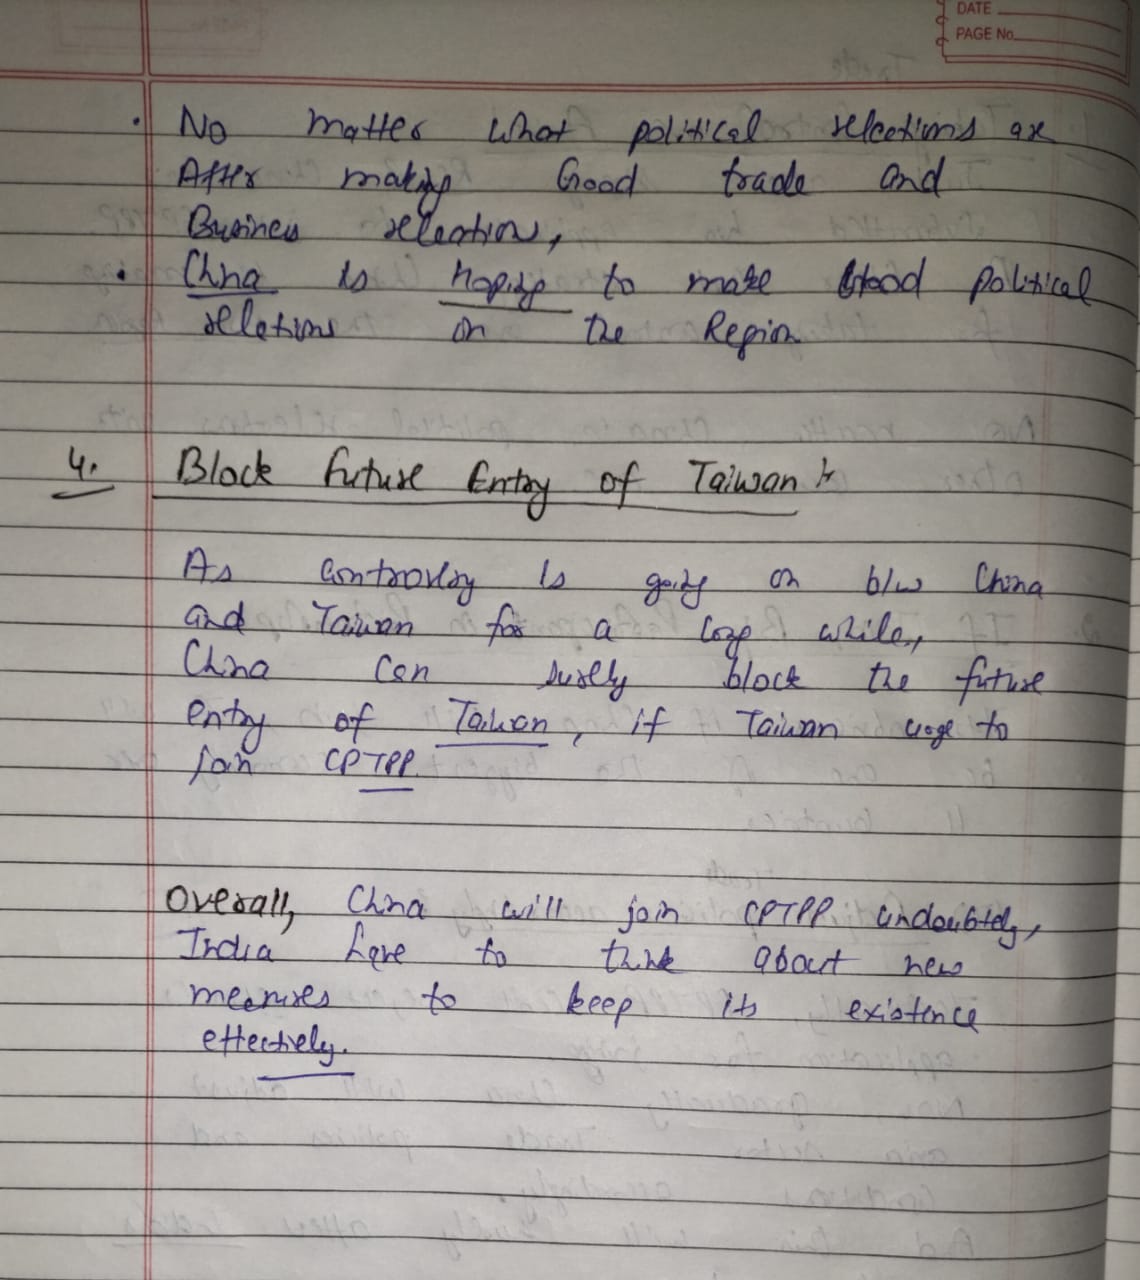 DATE
PAGE No.
. No matter what political relections are
After making Good trade and
Business relection,
. China is hoping to make Good political
relletions in the Region
4. Block future Entry of Taiwan :-
As controvesy is going on b/w China
and Taiwan for a long while,
China can surely block the future
entry of Taiwan, if Taiwan urge to
join CPTPP.
Overall, China will join CPTPP undoubtedly,
India have to think about new
measures to keep its existence
effectively.